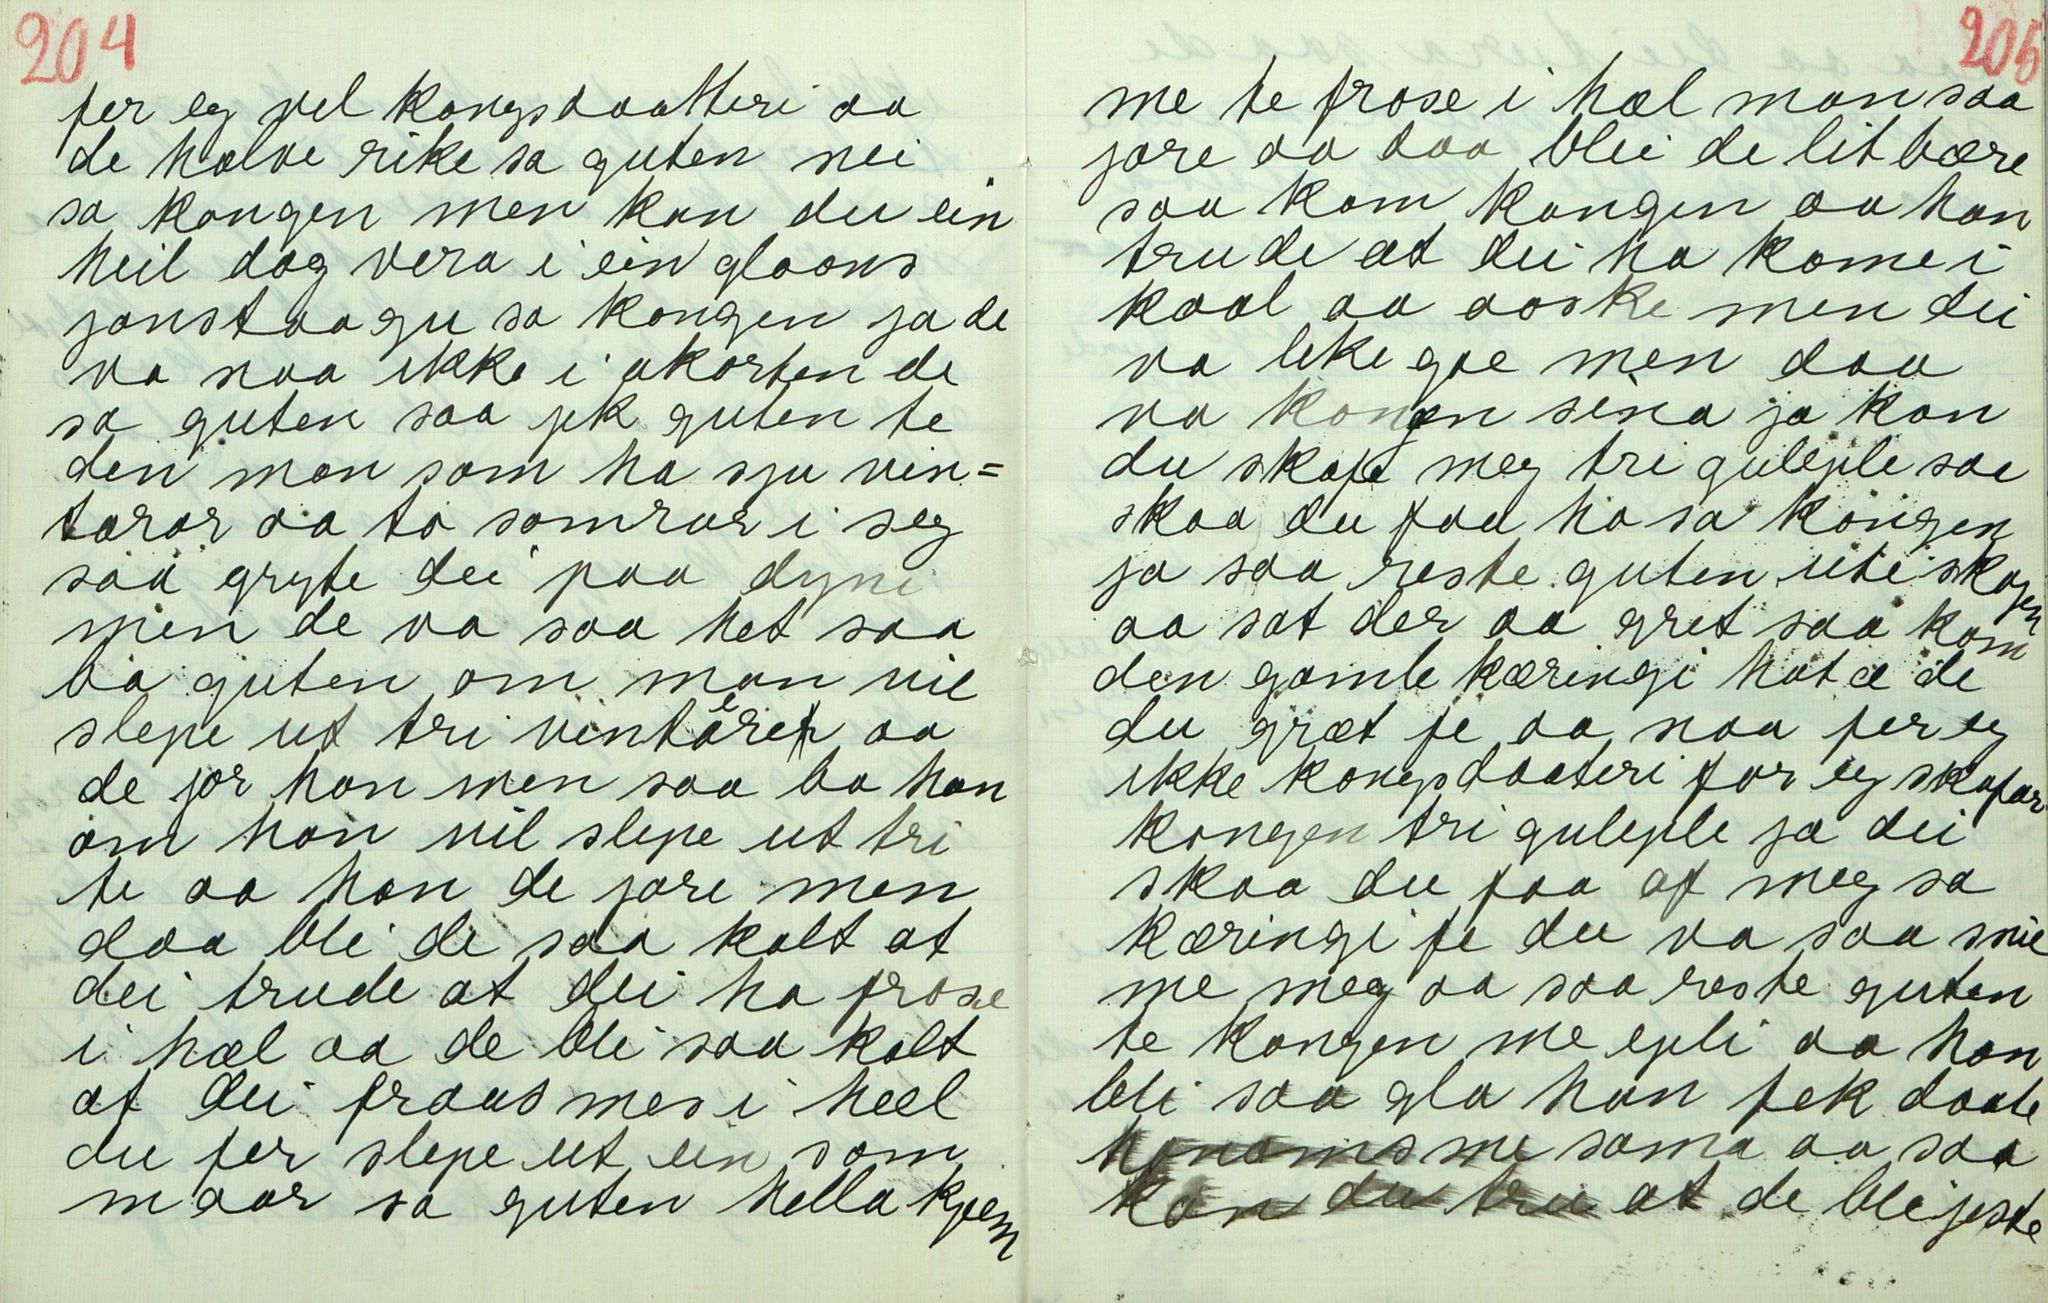 204
fer eg vel kongsdaatteri aa
de halve rike sa guten nei
sa kongen men kan du ein
heil dag vera i ein gloans
jonstaagu sa kongen ja de
va naa ikke i akorten de
sa guten saa jek guten te
den man som ha sju vin=
tarar aa to somrar i seg
saa gryte dei paa dyni
men de va saa het saa
ba guten om man vil
slepe ut tri vintêrer aa
de jor han men saa ba han
om han vil slepe ut tri
te aa han de jore men
daa blei de saa kalt at
dei trude at dei ha frose
i hæl aa de blei saa kalt
at dei fraus mes i heel
du fer slepe ut ein som
maar sa guten hella kjem
205
me te frose i hæl man saa
jore aa daa blei de lit bære
saa kom kongen aa han
trude at dei ha kome i
kaal aa aoske men dei
va like goe men daa
va kongen sina ja kan
du skafe meg tri guleple sae
skaa du faa ho sa kongen
ja saa reste guten uti skogen
aa sat der aa gret saa kom
den gamle kæringi hot æ de
du græt fe aa naa fer eg
ikke kongsdaateri for eg skafar
kongen tri guleple ja dei
skaa du faa af meg sa
kæringi fe du va saa snil
me meg aa saa reste guten
te kongen me epli aa han
blei saa gla han fek daate
honoms me sama aa saa
kan du tru at de blei jeste